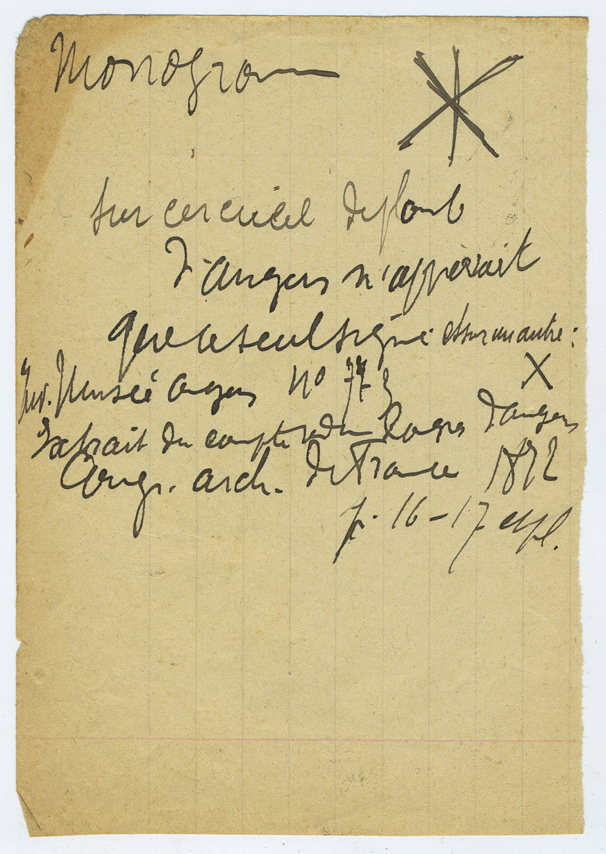 Monogram
sur cercueil de plomb
d'Angers n'apparait
que le seul signe et sur un autre :
Inv. Musée Angers No 77 X
Extrait du compte rendu Congrès d'Angers
Congr. arch. de France 1872
p. 16-17 et pl.